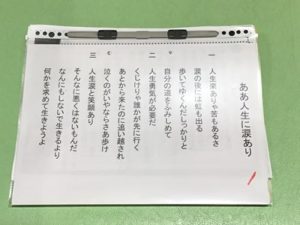 ああ人生に涙あり
一 人生楽ありゃ苦もあるさ
涙の後には虹も出る
歩いてゆくんだしっかりと
自分の道をふみしめて
二 人生勇気が必要だ
くじけりゃ誰かが先に行く
あとから来たのに追い越され
泣くのがいやならさあ歩け
三 人生涙と笑顔あり
そんなに悪くはないもんだ
なんにもしないで生きるより
何かを求めて生きようよ